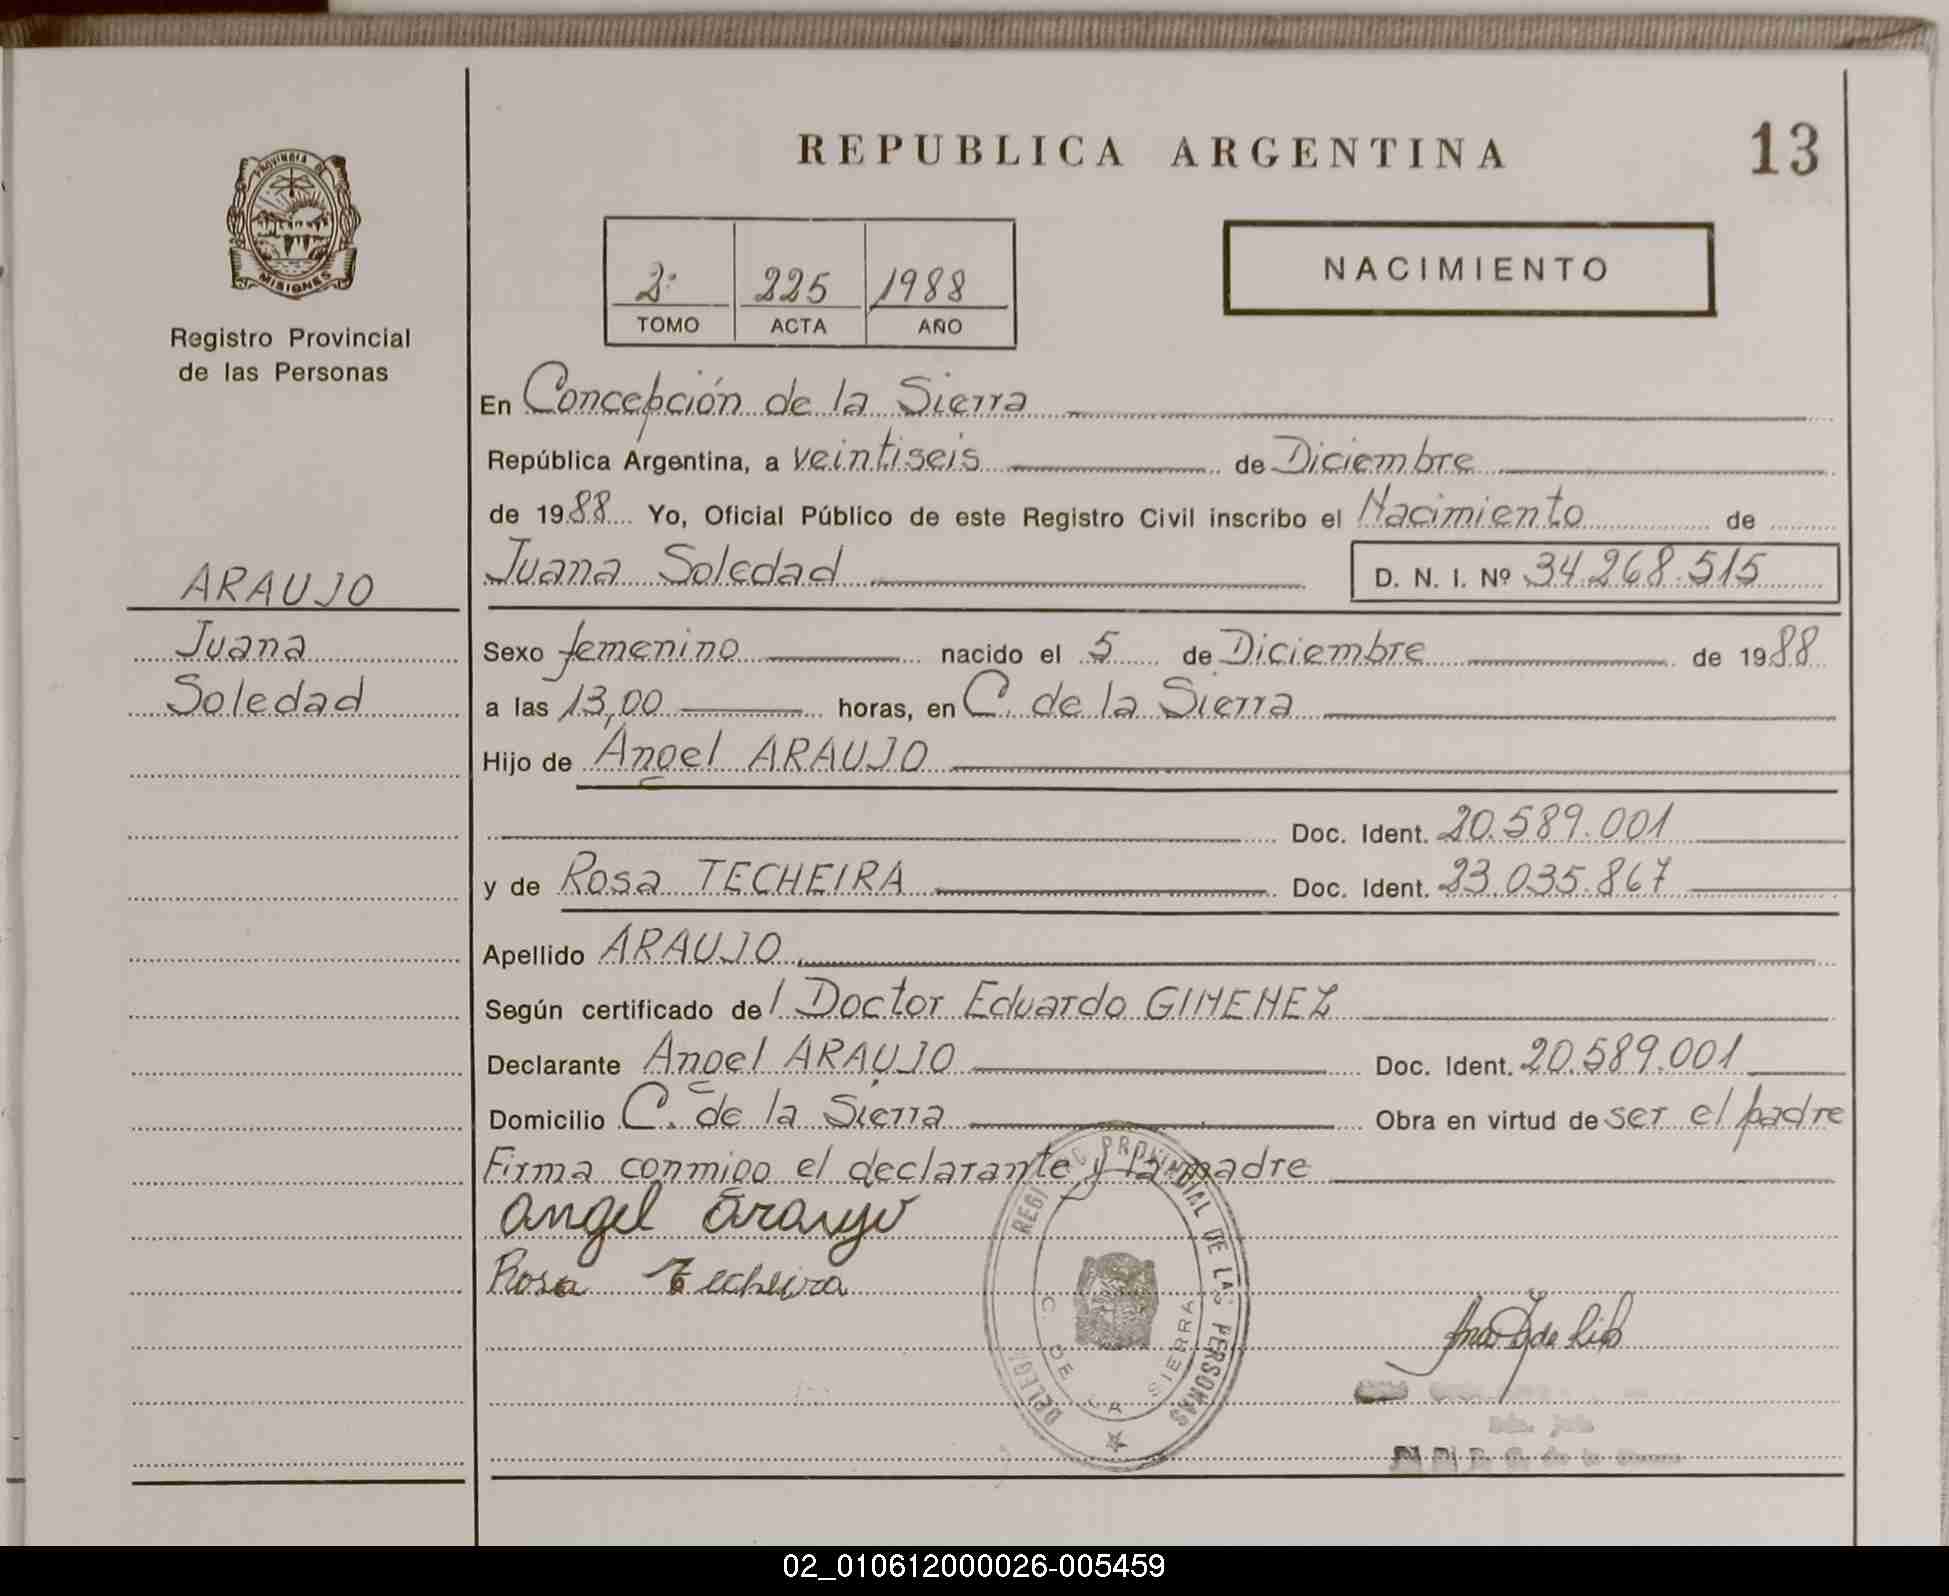 REPUBLICA ARGENTINA
13
PROVINCIA DE
MISIONES
Registro Provincial
de las Personas
2º 225 1988
TOMO ACTA AÑO
NACIMIENTO
ARAUJO
Juana
Soledad
En Concepción de la Sierra
República Argentina, a veintiseis de Diciembre
de 1988 Yo, Oficial Público de este Registro Civil inscribo el Nacimiento de
Juana Soledad D. N. I. Nº 34.268.515
Sexo femenino nacido el 5 de Diciembre de 1988
a las 13,00 horas, en C. de la Sierra
Hijo de Angel ARAUJO
Doc. Ident. 20.589.001
y de Rosa TECHEIRA Doc. Ident. 23.035.867
Apellido ARAUJO
Según certificado del Doctor Eduardo GIMENEZ
Declarante Angel ARAUJO Doc. Ident. 20.589.001
Domicilio C. de la Sierra Obra en virtud de ser el padre
Firma conmigo el declarante y la madre
Angel Araujo
Rosa Techeira
REGISTRO PROVINCIAL DE LAS PERSONAS
C. DE LA SIERRA
02_010612000026-005459